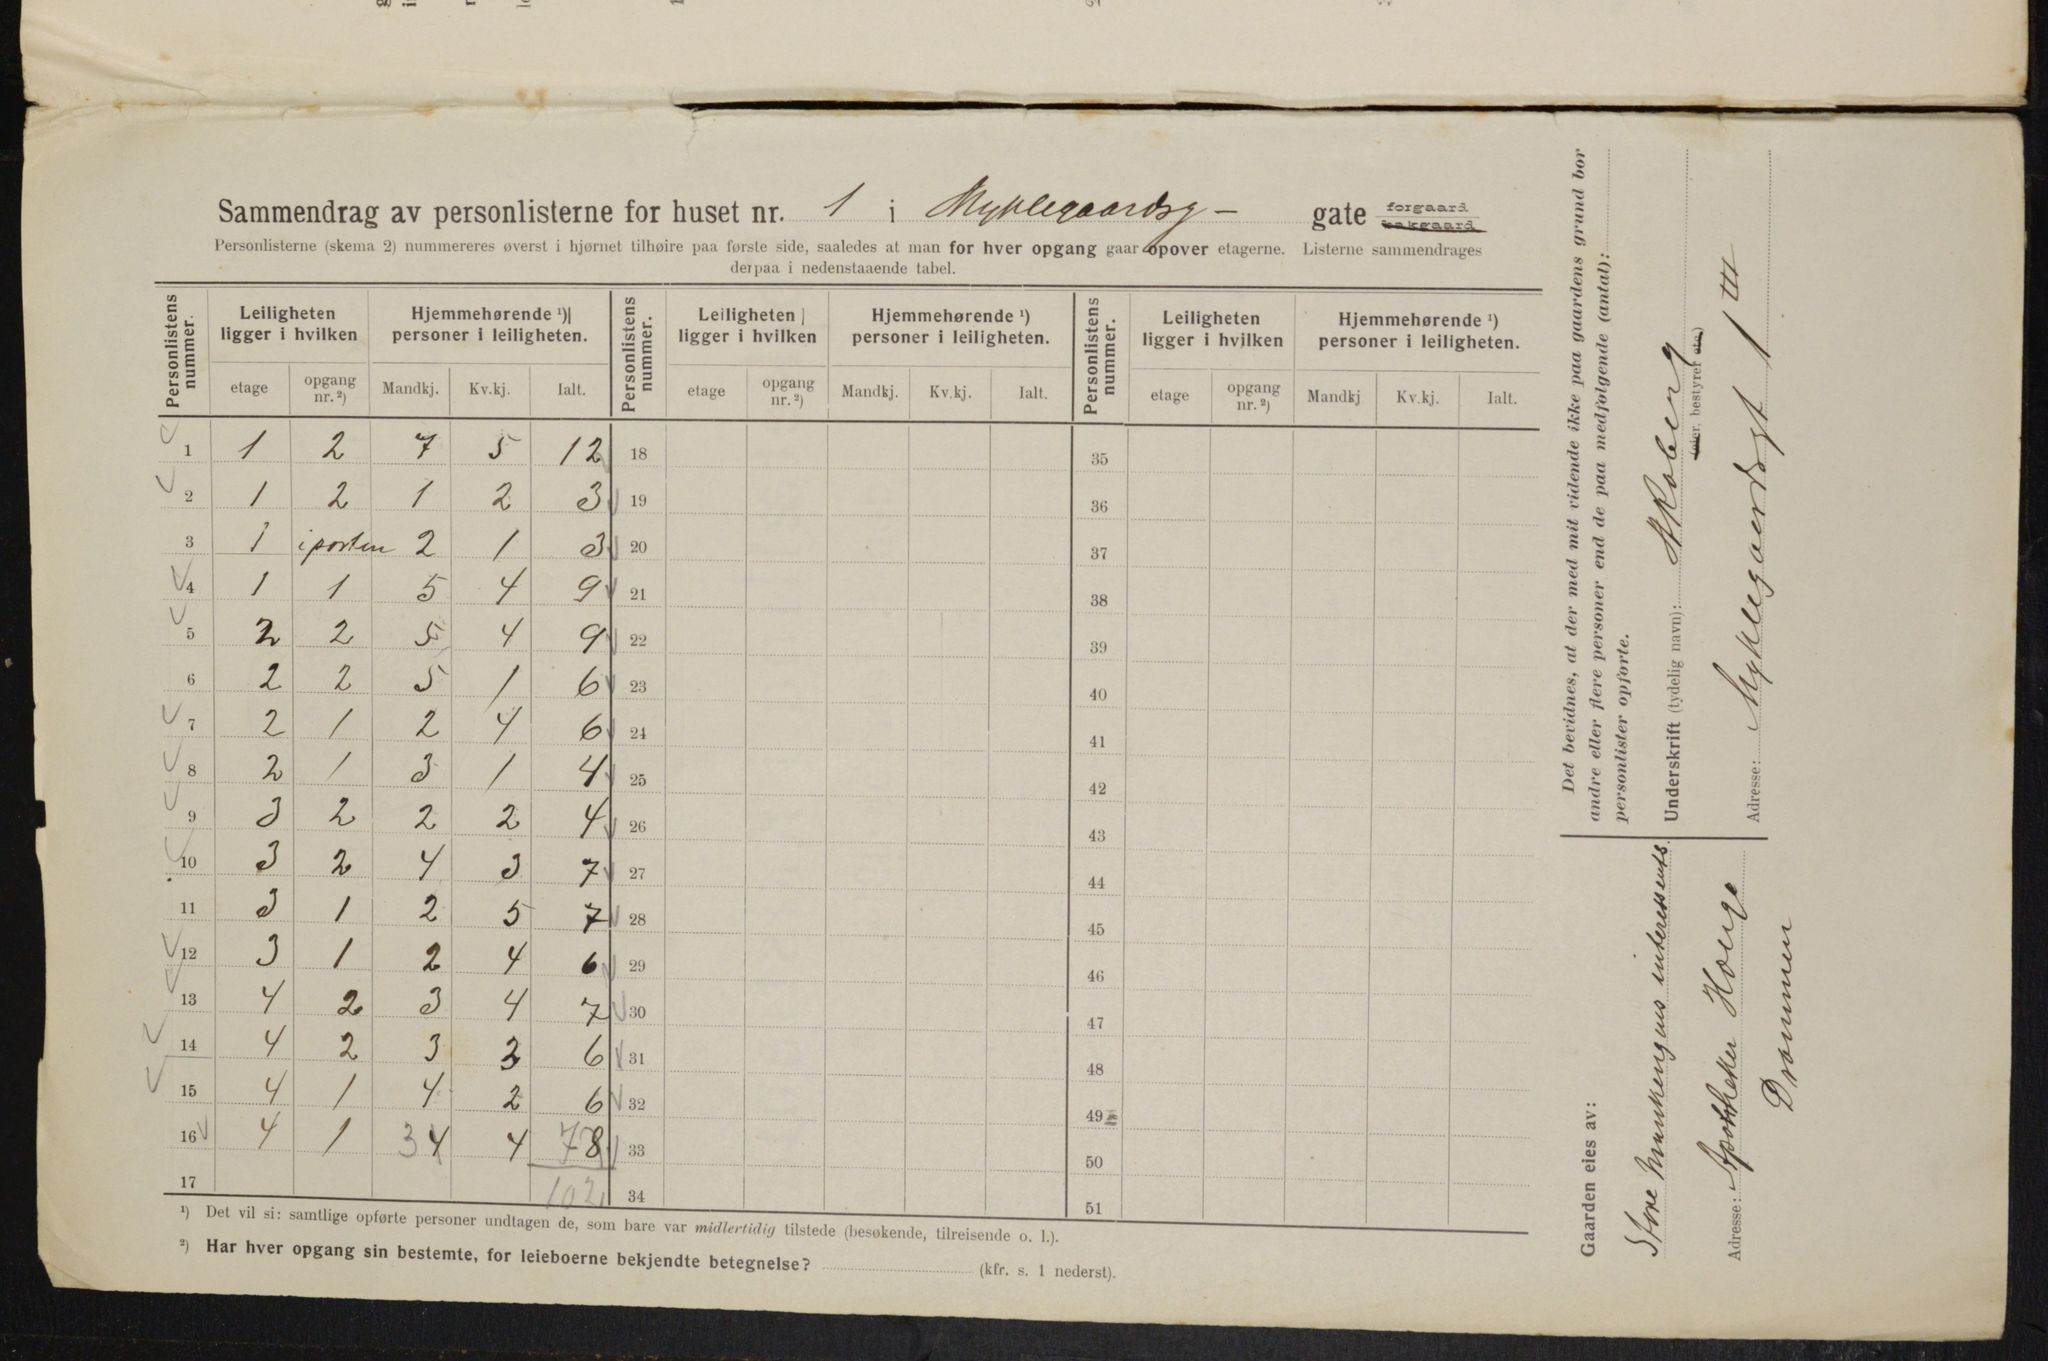 Sammendrag av personlisterne for huset nr. 1 i Myklegaardsg- gate forgaard bakgaard
Personlisterne (skema 2) nummereres øverst i hjørnet tilhøire paa første side, saaledes at man for hver opgang gaar opover etagerne. Listerne sammendrages
derpaa i nedenstaaende tabel.
Personlistens nummer. Leiligheten ligger i hvilken Hjemmehørende ¹) personer i leiligheten. Personlistens nummer. Leiligheten ligger i hvilken Hjemmehørende ¹) personer i leiligheten. Personlistens nummer. Leiligheten ligger i hvilken Hjemmehørende ¹) personer i leiligheten.
etage opgang nr. ²) Mandkj. Kv.kj. Ialt. etage opgang nr. ²) Mandkj. Kv.kj. Ialt. etage opgang nr. ²) Mandkj Kv.kj. Ialt.
1 1 2 7 5 12 18 35
2 1 2 1 2 3 19 36
3 1 i porten 2 1 3 20 37
4 1 1 5 4 9 21 38
5 2 2 5 4 9 22 39
6 2 2 5 1 6 23 40
7 2 1 2 4 6 24 41
8 2 1 3 1 4 25 42
9 3 2 2 2 4 26 43
10 3 2 4 3 7 27 44
11 3 1 2 5 7 28 45
12 3 1 2 4 6 29 46
13 4 2 3 4 7 30 47
14 4 2 3 3 6 31 48
15 4 1 4 2 6 32 49
16 4 1 3 4 4 7 8 33 50
17 102 34 51
¹) Det vil si: samtlige opførte personer undtagen de, som bare var midlertidig tilstede (besøkende, tilreisende o. l.).
²) Har hver opgang sin bestemte, for leieboerne bekjendte betegnelse? (kfr. s. 1 nederst).
Det bevidnes, at der med mit vidende ikke paa gaardens grund bor
andre eller flere personer end de paa medfølgende (antal):
personlister opførte.
Underskrift (tydelig navn): Skoberg
(eier, bestyrer etc.)
Adresse: Myklegaardsgt 1 III
Gaarden eies av:
Store Munkengaus interessents.
Adresse: Apotheker Hoerge
Drammen